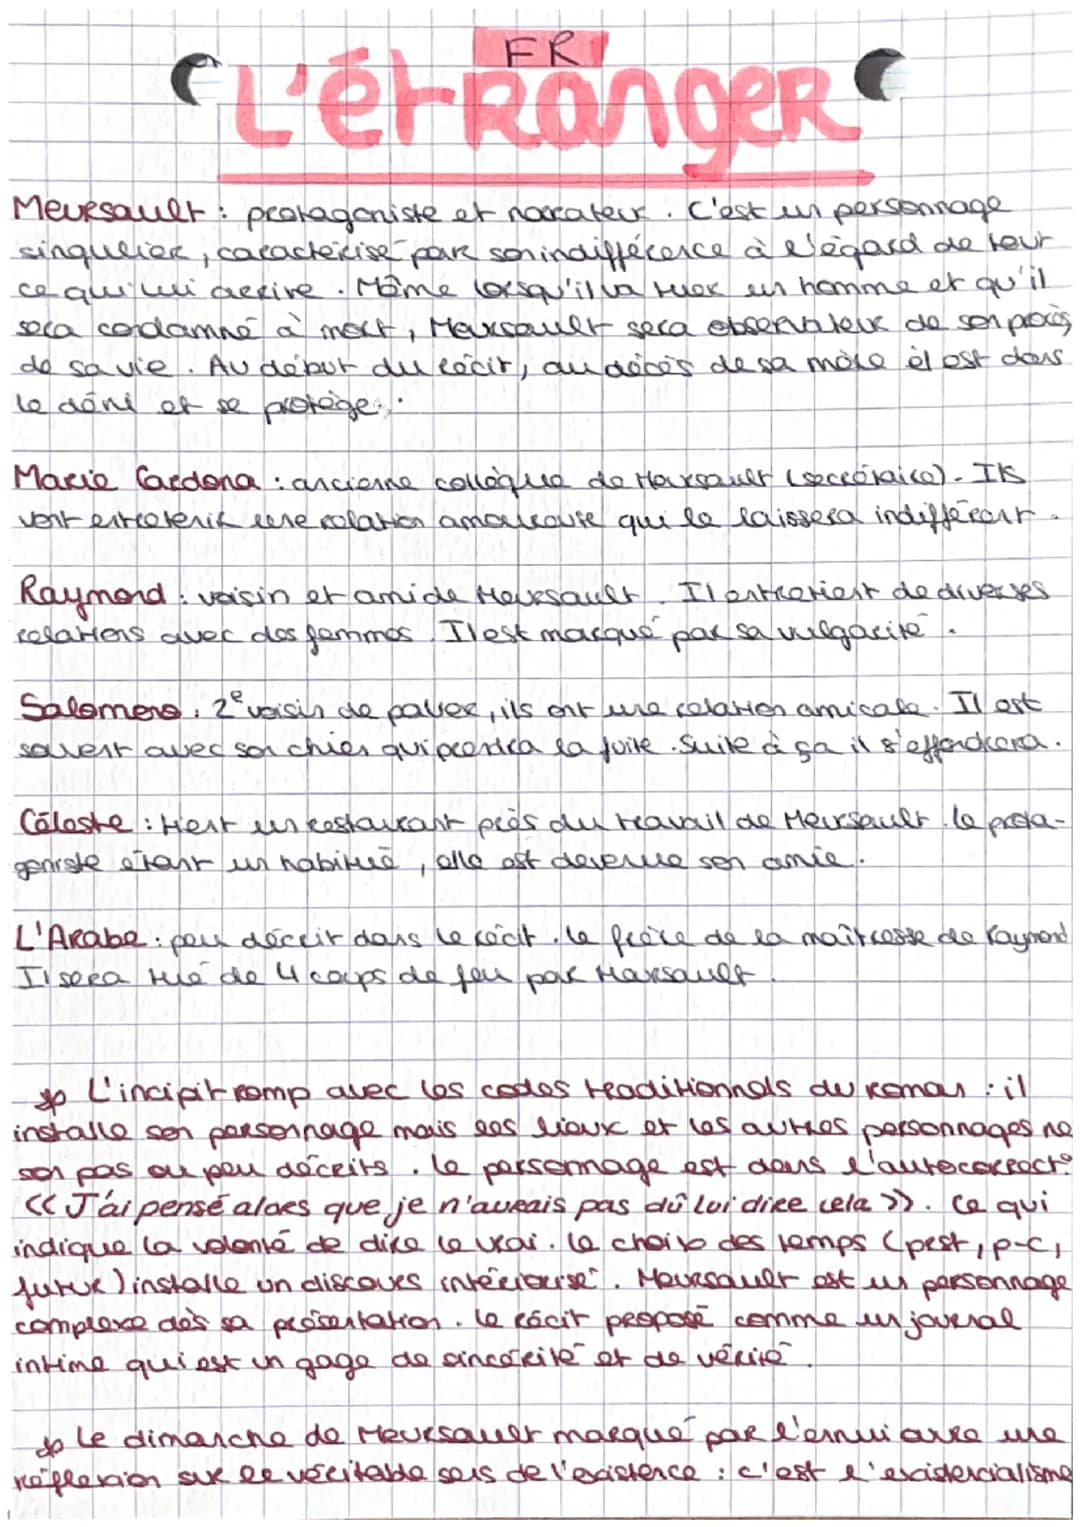 FR
L'étranger
Meursault : protagoniste et narrateur. C'est un personnage
singulier, caractérisé par son indifférence à l'égard de tout
ce qui lui arrive. Même lorsqu'il va tuer un homme et qu'il
sera condamné à mort, Meursault sera observateur de son procès,
de sa vie. Au début du récit, au décès de sa mère il est dans
le déni et se protège.
Marie Cardona : ancienne collègue de Meursault (secrétaire). Ils
vont entretenir une relation amoureuse qui le laissera indifférent.
Raymond : voisin et ami de Meursault. Il entretient de diverses
relations avec des femmes. Il est marqué par sa vulgarité.
Salamano : 2e voisin de palier, ils ont une relation amicale. Il est
souvent avec son chien qui prendra la fuite. Suite à ça il s'effondrera.
Céleste : tient un restaurant près du travail de Meursault. Le prota-
goniste étant un habitué, elle est devenue son amie.
L'Arabe : peu décrit dans le récit. Le frère de la maîtresse de Raymond
Il sera tué de 4 coups de feu par Meursault.
L'incipit romp avec les codes traditionnels du roman : il
installe son personnage mais les lieux et les autres personnages ne
son pas ou peu décrits. Le personnage est dans l'autocorrect°
« J'ai pensé alors que je n'aurais pas dû lui dire cela ». Ce qui
indique la volonté de dire le vrai. Le choix des temps (pest, p-c,
futur) installe un discours intériorisé. Meursault est un personnage
complexe dès sa présentation. Le récit proposé comme un journal
intime qui est un gage de sincérité et de vérité.
Le dimanche de Meursault marqué par l'ennui ouvre une
réflexion sur le véritable sens de l'existence : c'est l'existencialisme